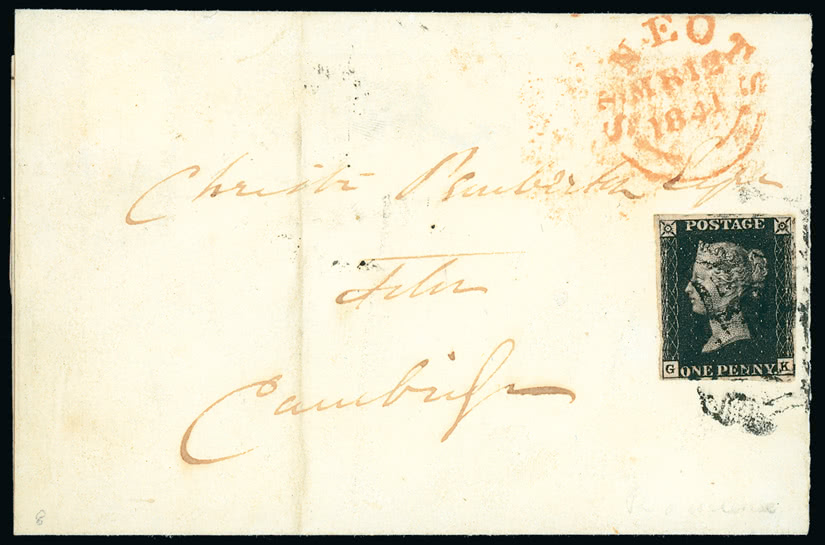 ST NEOTS
MR 12
1841
Christr Pemberton Esqr
Cambridge
POSTAGE
G ONE PENNY K
8